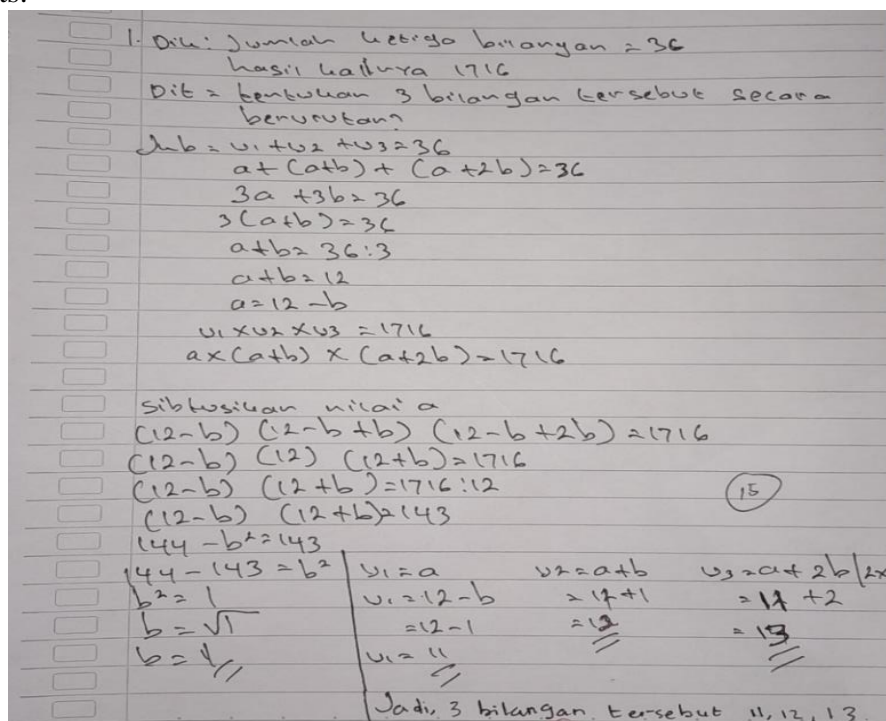 ts.
1. Dik: Jumlah ketiga bilangan = 36
hasil kalinya 1716
Dit = tentukan 3 bilangan tersebut secara
berurutan?
Jwb = U1 + U2 + U3 = 36
a + (a+b) + (a+2b) = 36
3a + 3b = 36
3(a+b) = 36
a+b = 36:3
a+b = 12
a = 12 - b
U1 x U2 x U3 = 1716
a x (a+b) x (a+2b) = 1716
Sibtusikan nilai a
(12-b) (12-b+b) (12-b+2b) = 1716
(12-b) (12) (12+b) = 1716
(12-b) (12+b) = 1716:12
15
(12-b) (12+b) = 143
144 - b² = 143
144 - 143 = b²
b² = 1
b = √1
b = 1
U1 = a
U1 = 12 - b
= 12 - 1
U1 = 11
U2 = a+b
= 11 + 1
= 12
U3 = a + 2b
= 11 + 2
= 13
Jadi, 3 bilangan tersebut 11, 12, 13